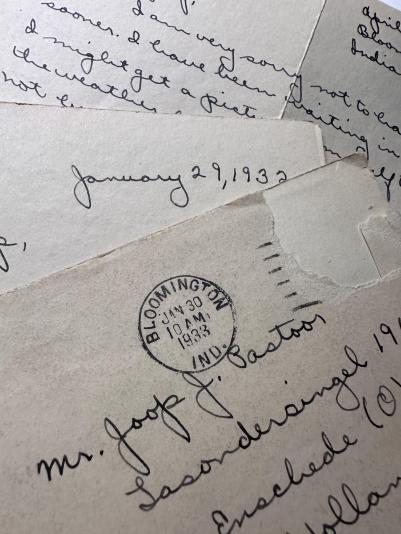 sooner. I am very sorry not to ha
I might get a pict
I have been waiting in
the weather
not
April
Bloom
India
January 29, 1933
BLOOMINGTON
JAN 30
10 AM
1933
IND.
Mr. Joop J. Pastoor
Lasondersingel 19
Enschede (O
Hollan